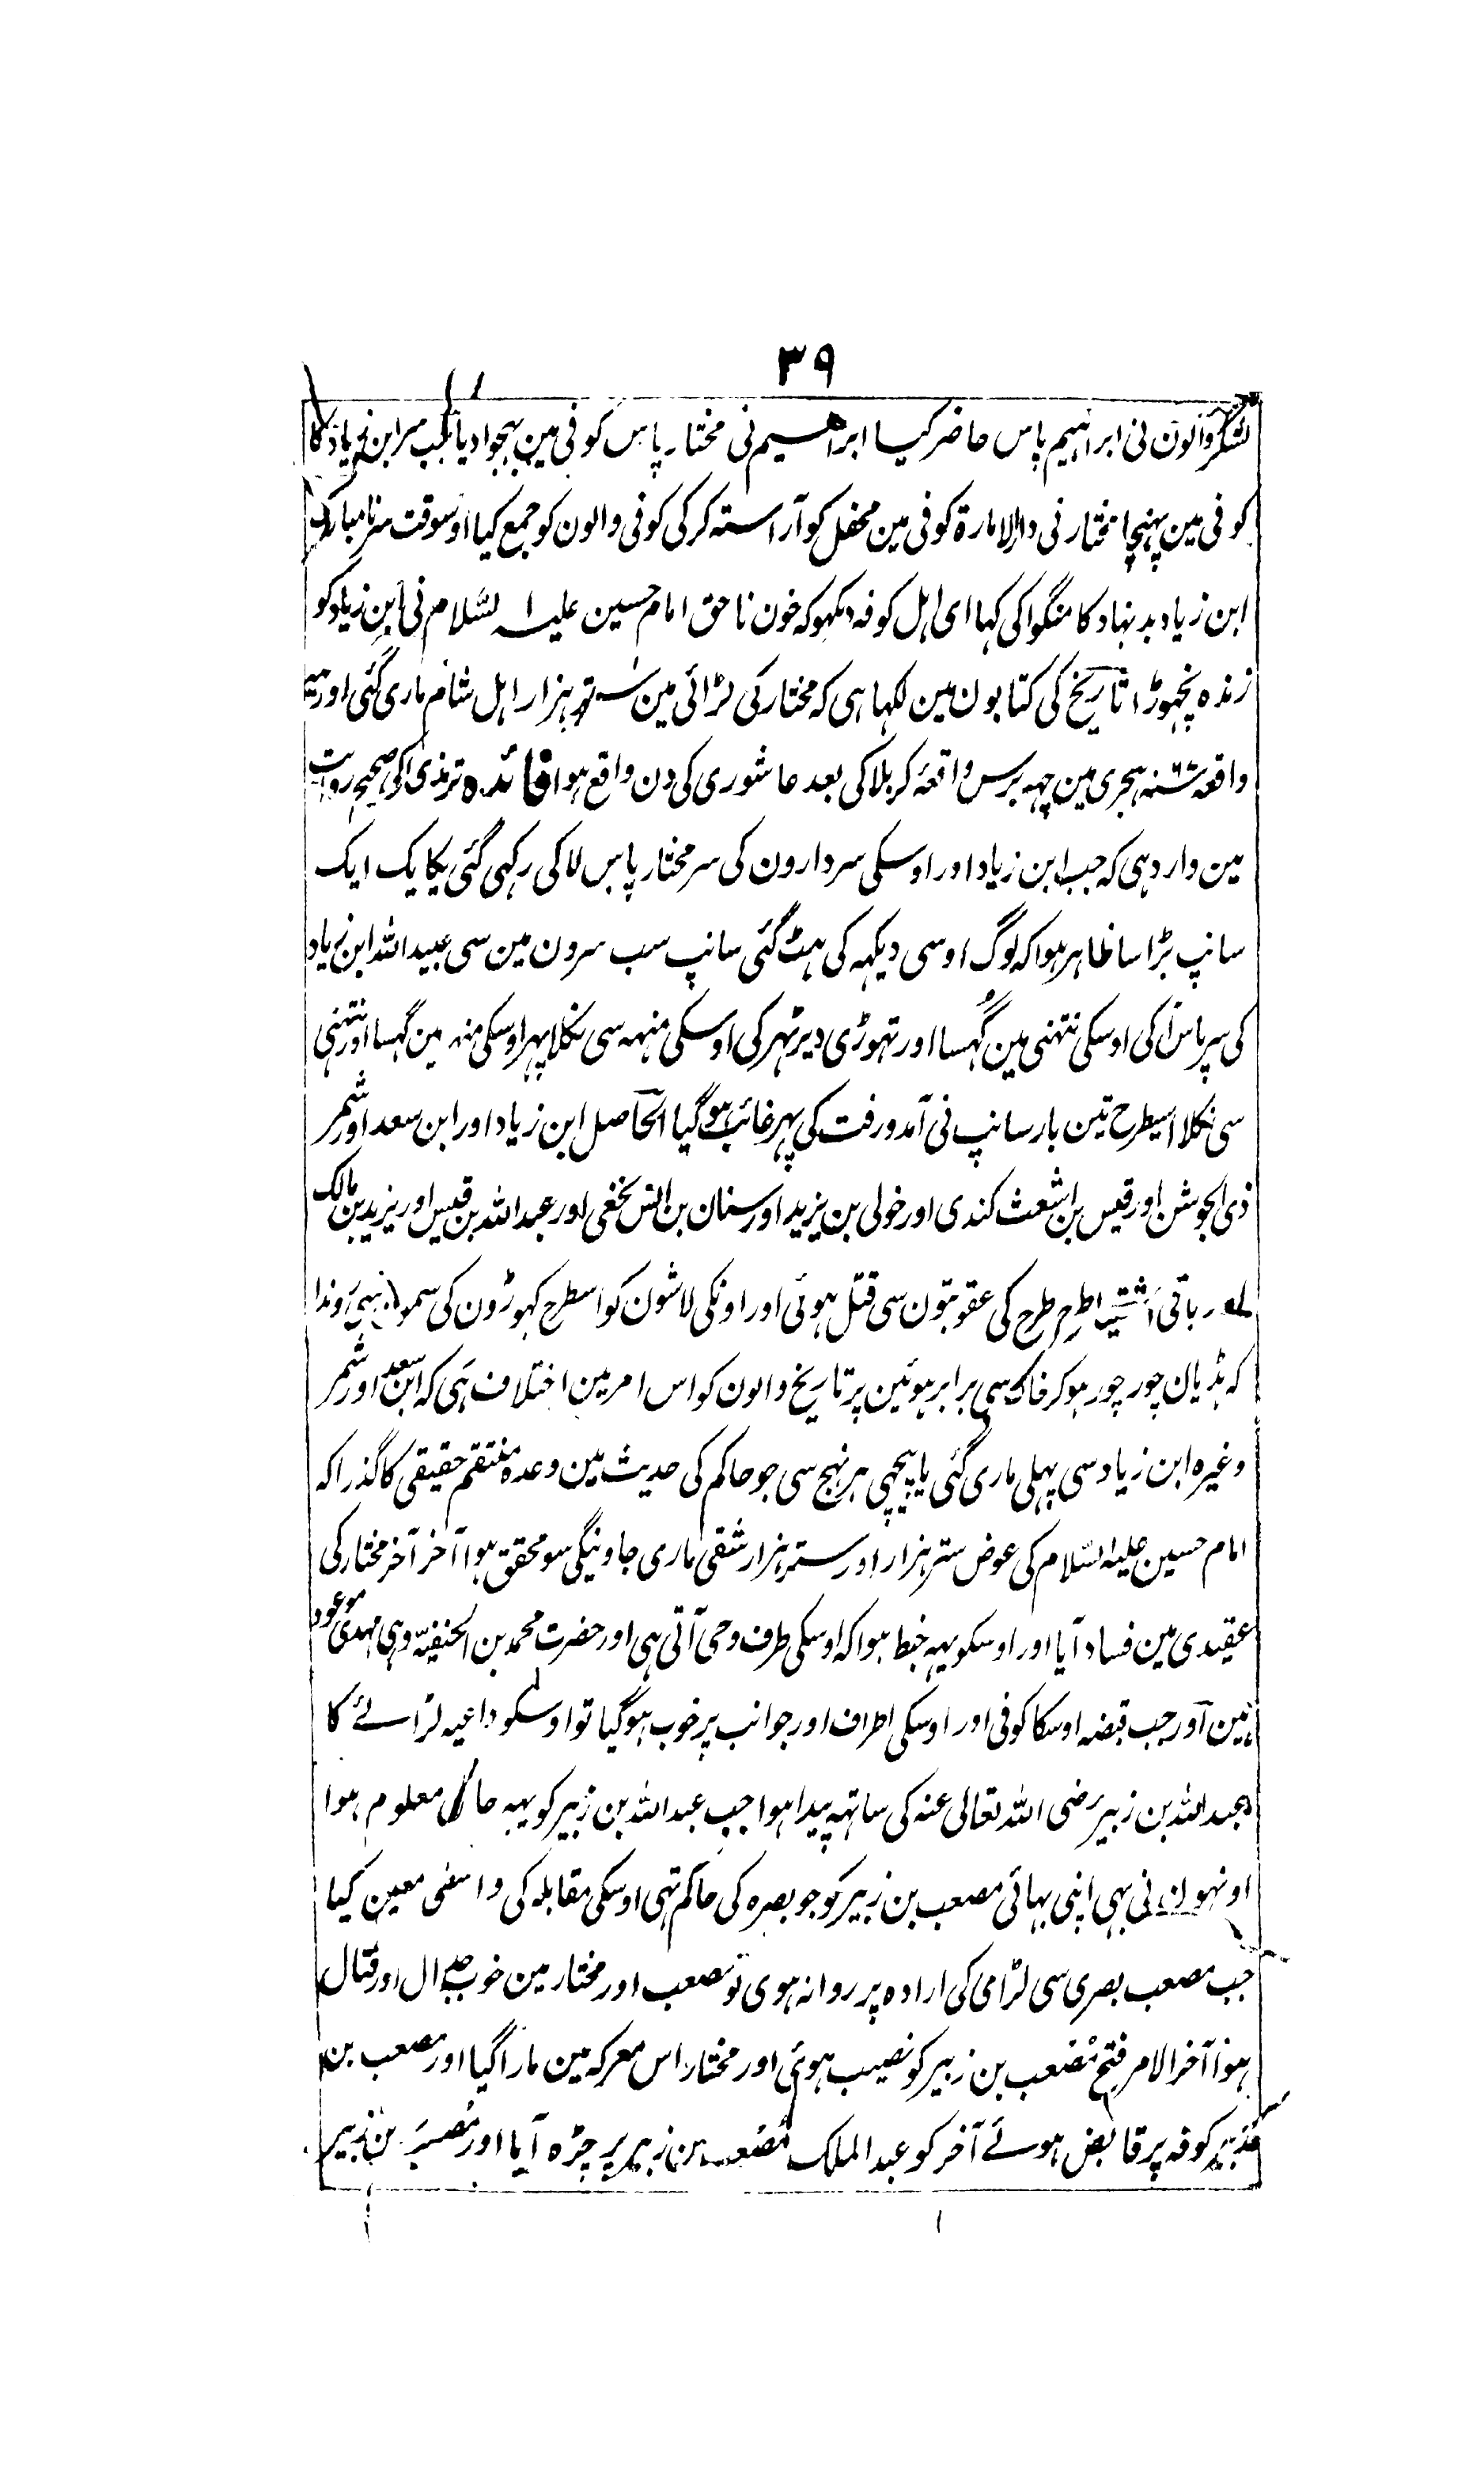 ٣٩
لشکر والون نی ابراہیم پاس حاضر کیا ابراھیم نی مختار پاس کوفی مین بہجوا دیا جب سر ابن زیاد کا
کوفی مین پہنچا مختار نی دار الامارۃ کوفی مین محفل کو آراستہ کر کی کوفی والون کو جمع کیا اوسوقت سر نا مبارک
ابن زیاد بد نہاد کا منگوا کی کہا ای اہل کوفہ دیکہو کہ خون ناحق امام حسین علیہ السّلام نی ابن زیاد کو
زندہ نچہوڑا تاریخ کی کتابون مین لکہا ہی کہ مختار کی لڑائی مین ستّر ہزار اہل شام ماری گئی اور یہہ
واقعہ سنہ ہجری مین چہہ برس واقعۂ کربلا کی بعد عاشوری کی دن واقع ہوا فائدہ ترمذی کی صحیح روایت
مین وارد ہی کہ جب ابن زیاد اور اوسکی سردارون کی سر مختار پاس لا کی رکہی گئی یکایک ایک
سانپ بڑا سا ظاہر ہوا کہ لوگ اوسی دیکہہ کی ہٹ گئی سانپ سب سرون مین سی عبید اللہ ابن زیاد
کی سر پاس آ کی اوسکی نتہنی مین گُہسا اور تہوڑی دیر ٹہر کی اوسکی منہہ سی نکلا پہر اوسکی منہ مین گہسا اور نتہنی
سی نکلا اسیطرح تین بار سانپ نی آمد و رفت کی پہر غائب ہو گیا الحاصل ابن زیاد اور ابن سعد اور شمر
ذی الجوشن اور قیس بن اشعث کندی اور خولی بن یزید اور سنان بن انس نخعی اور عبد اللہ بن قیس اور یزید بن مالک
اور باقی اشقیا طرح طرح کی عقوبتون سی قتل ہوئی اور اونکی لاشون کو اسطرح گہوڑون کی سمون سی روندا
کہ ہڈیان چور چور ہو کر خاک سی برابر ہوئین پر تاریخ والون کو اس امر مین اختلاف ہی کہ ابن سعد اور شمر
وغیرہ ابن زیاد سی پہلی ماری گئی یا پیچہی ہر نہج سی جو حاکم کی حدیث مین وعدہ منتقم حقیقی کا گذرا کہ
امام حسین علیہ السّلام کی عوض ستر ہزار اور ستر ہزار شقی ماری جاوینگی سو محقق ہوا آخر آخر مختار کی
عقیدی مین فساد آیا اور اوسکو یہہ خبط ہوا کہ اوسکی طرف وحی آتی ہی اور حضرت محمد بن الحنفیّہ وہی مہدی موعود
ہین اور جب قبضہ اوسکا کوفی اور اوسکی اطراف اور جوانب پر خوب ہو گیا تو اوسکو داعیہ لڑائے کا
عبد اللہ بن زبیر رضی اللہ تعالی عنہ کی ساتہہ پیدا ہوا جب عبد اللہ بن زبیر کو یہہ حال معلوم ہوا
اونہون نی بہی اپنی بہائی مصعب بن زبیر کو جو بصرہ کی حاکم تہی اوسکی مقابلہ کی واسطی معین کیا
جب مصعب بصری سی لڑائی کی ارادہ پر روانہ ہوی تو مصعب اور مختار مین خوب جدال اور قتال
ہوا آخر الامر فتح مُصعب بن زبیر کو نصیب ہوئی اور مختار اس معرکہ مین مارا گیا اور مصعب بن
زبیر کوفہ پر قابض ہوئے آخر کو عبد الملک مُصعب بن زبیر پر چڑہ آیا اور مُصعب بن زبیر